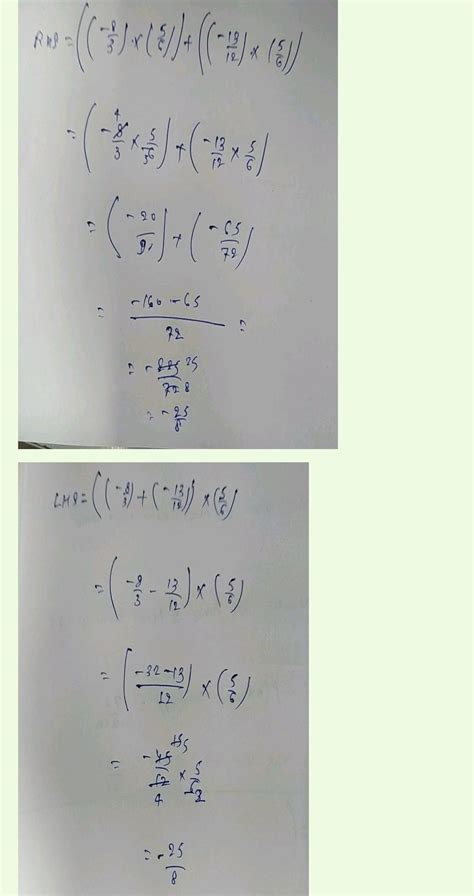 RHS = ((-8/3) × (5/6)) + ((-13/12) × (5/6))
= (-8/3 4 × 5/6 3) + (-13/12 × 5/6)
= (-20/9) + (-65/72)
= -160 - 65/72 =
= -225/72 25 8
= -25/8
LHS = ((-8/3) + (-13/12)) × (5/6)
= (-8/3 - 13/12) × (5/6)
= (-32-13/12) × (5/6)
= -45/12 15 4 × 5/6 2
= -25/8